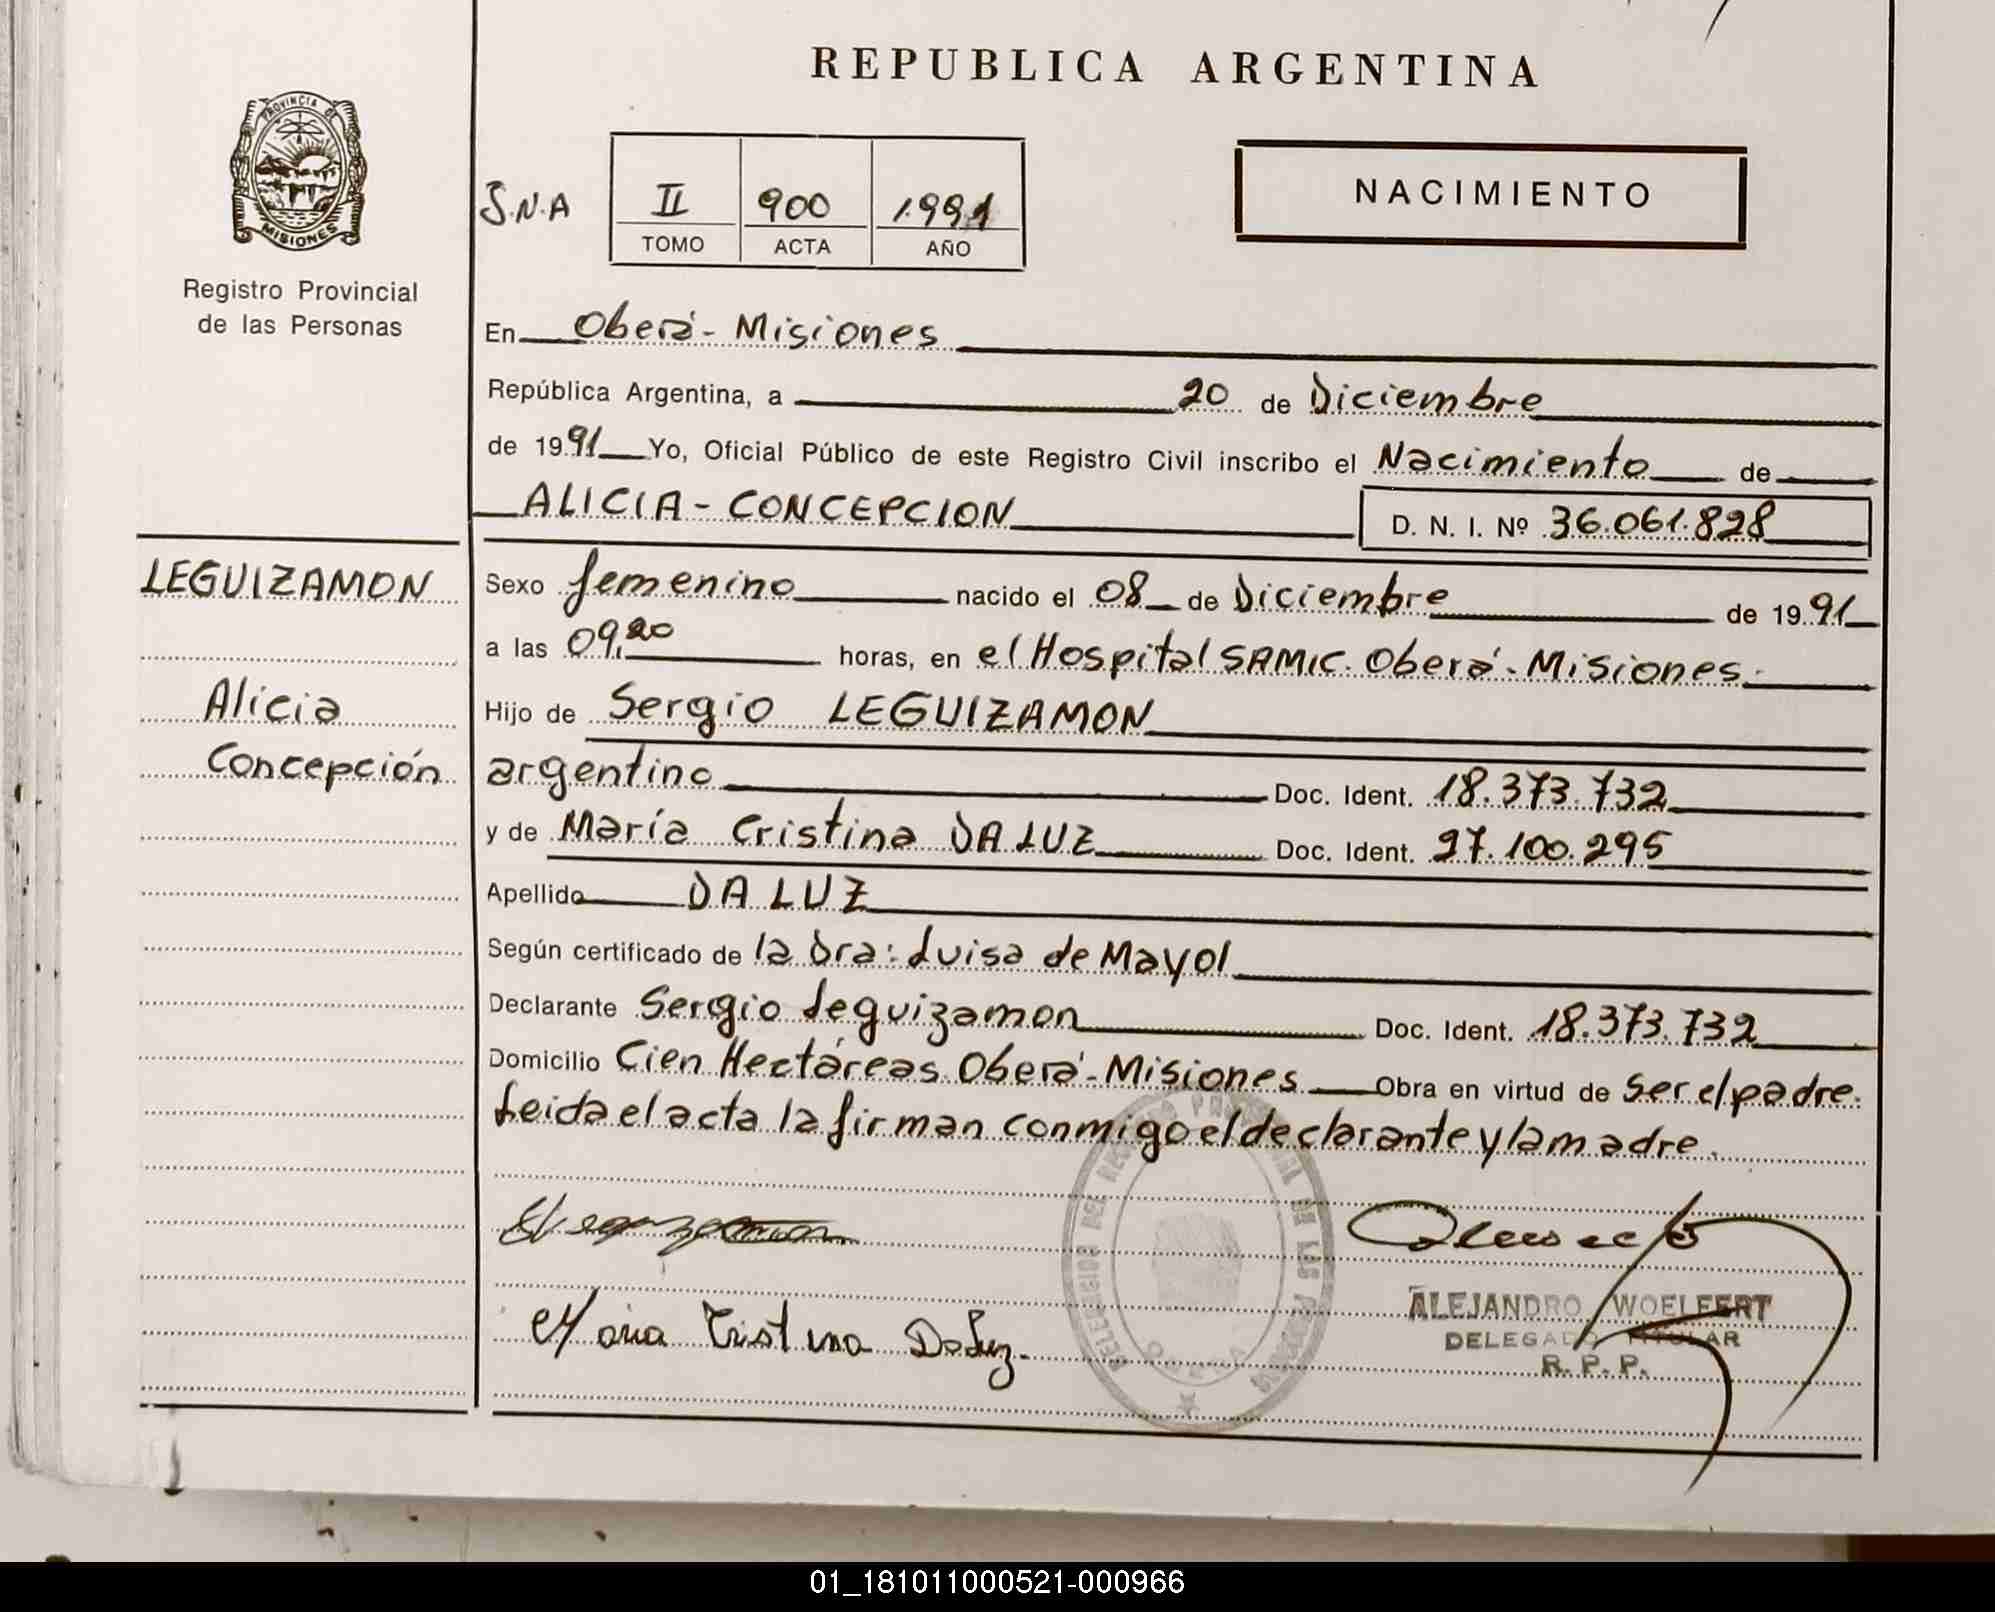 REPUBLICA ARGENTINA
PROVINCIA DE
MISIONES
Registro Provincial
de las Personas
S.N.A
II 900 1.991
TOMO ACTA AÑO
NACIMIENTO
En Oberá - Misiones
República Argentina, a 20 de Diciembre
de 1991 Yo, Oficial Público de este Registro Civil inscribo el Nacimiento de
ALICIA - CONCEPCION D. N. I. Nº 36.061.828
LEGUIZAMON
Alicia
Concepción
Sexo femenino nacido el 08 de Diciembre de 1991
a las 09,20 horas, en el Hospital SAMIC. Oberá - Misiones.
Hijo de Sergio LEGUIZAMON
argentino Doc. Ident. 18.373.732
y de María Cristina DA LUZ Doc. Ident. 27.100.295
Apellido DA LUZ
Según certificado de la Dra: Luisa de Mayol
Declarante Sergio Leguizamon Doc. Ident. 18.373.732
Domicilio Cien Hectáreas Oberá - Misiones Obra en virtud de ser el padre.
Leida el acta la firman conmigo el declarante y la madre.
Maria Cristina DaLuz.
DELEGACION DEL REGISTRO PROVINCIAL DE LAS PERSONAS
OBERA
ALEJANDRO WOELFERT
DELEGADO TITULAR
R. P. P.
01_181011000521-000966